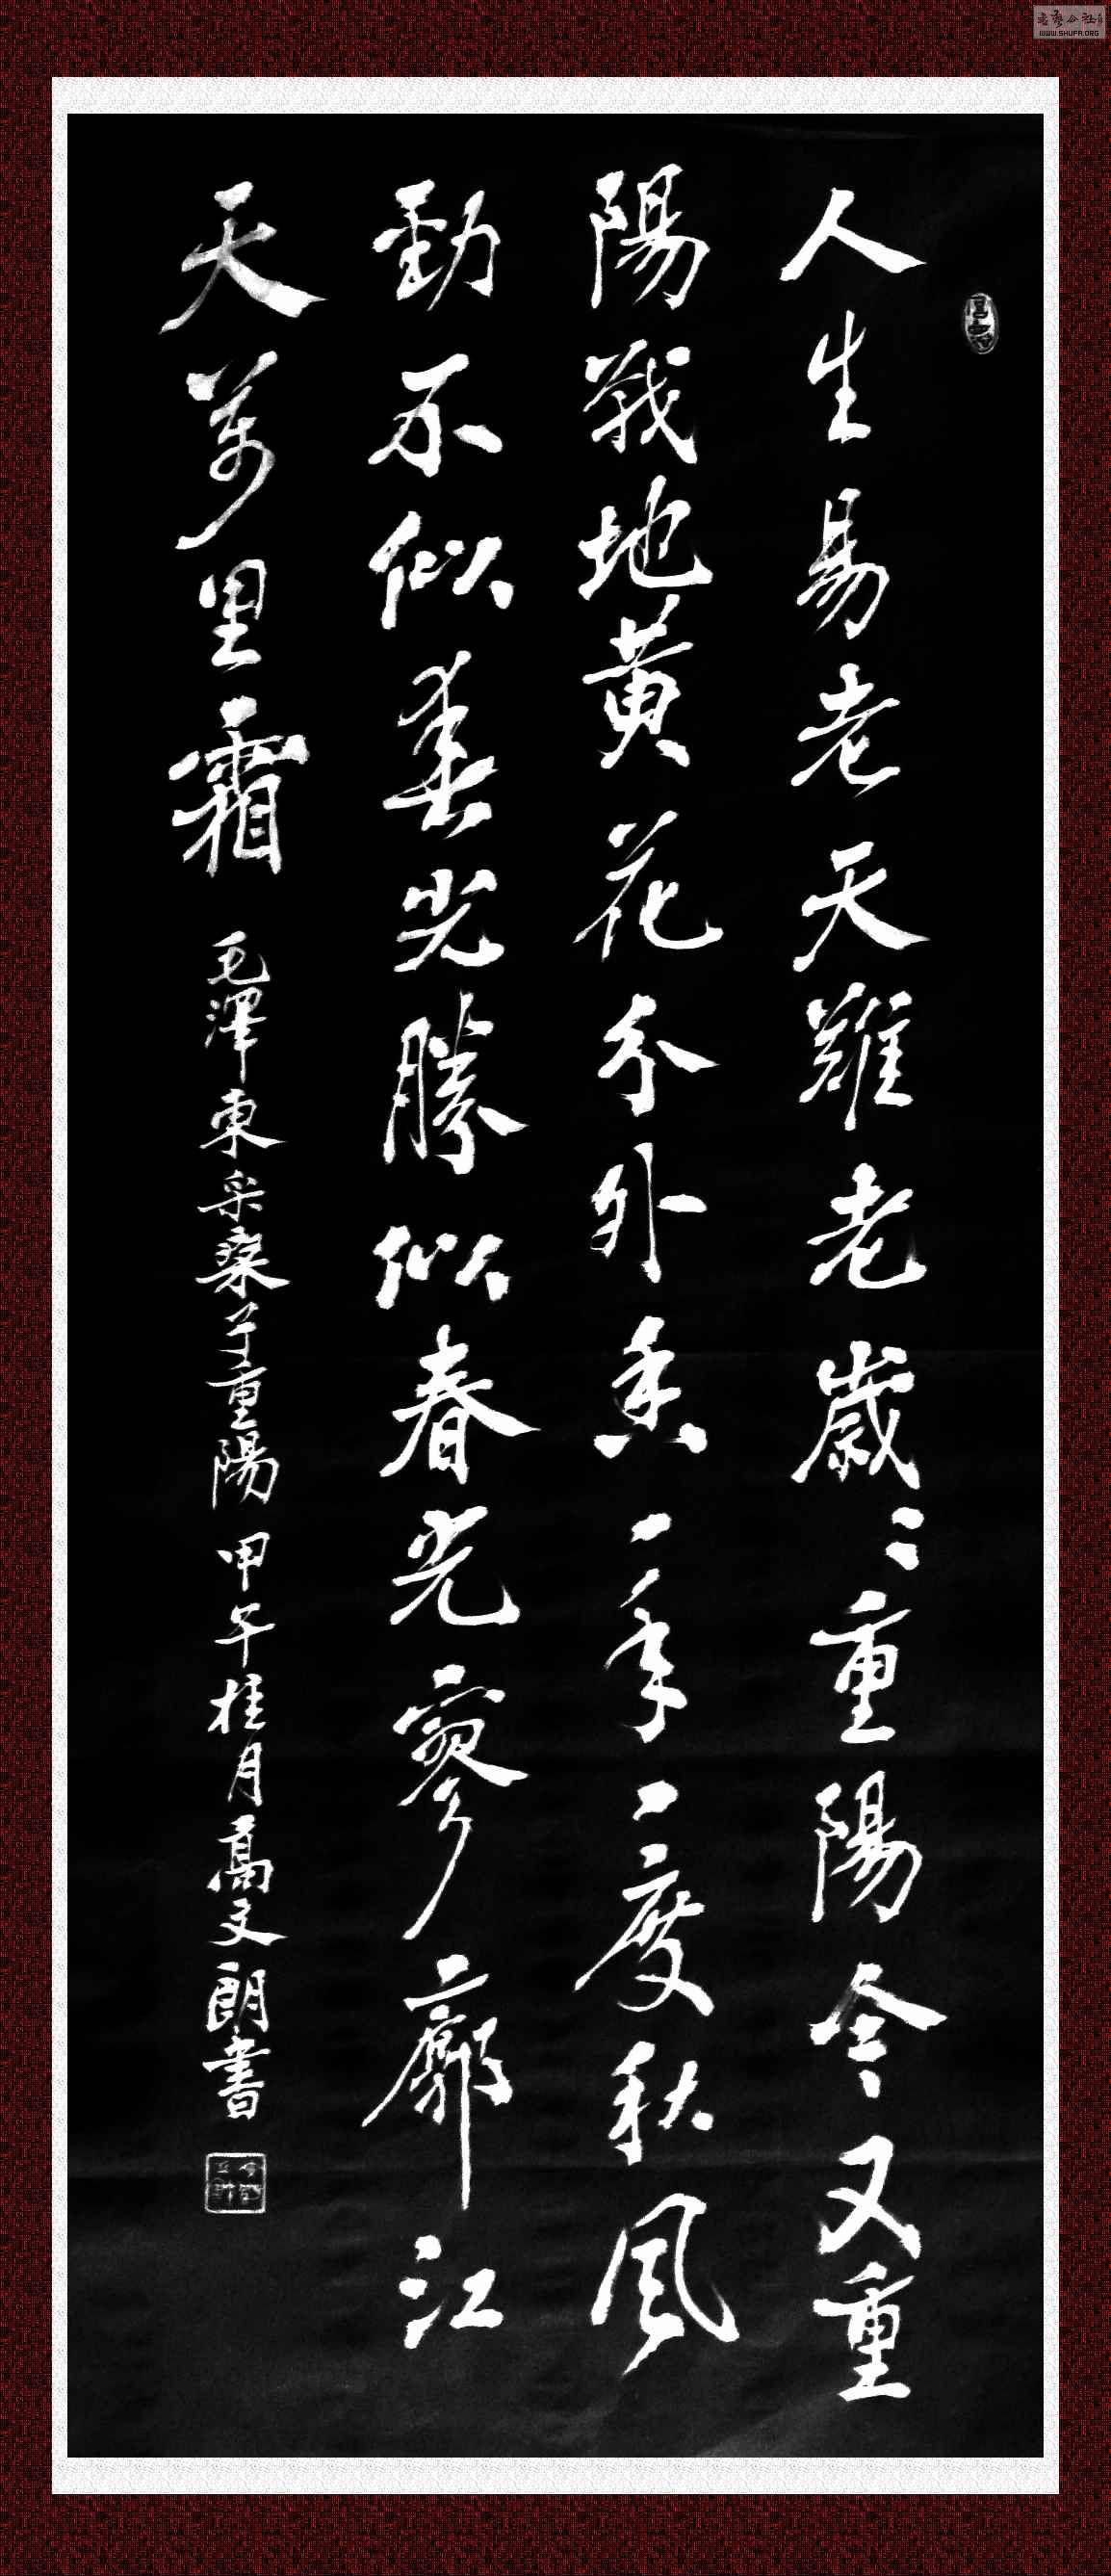 人生易老天難老歲〻重陽今又重
陽戰地黃花分外香一年一度秋風
勁不似春光勝似春光寥廓江
天萬里霜 毛澤東采桑子重陽 甲午桂月高文朗書
WWW.SHUFA.ORG